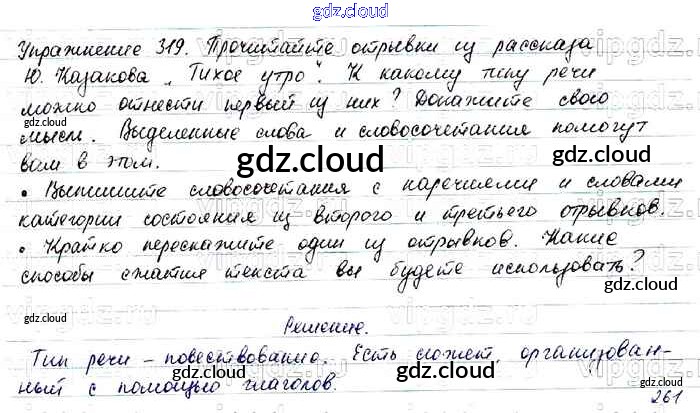 gdz.cloud
Упражнение 319. Прочитайте отрывки из рассказа
Ю. Казакова „Тихое утро". К какому типу речи
можно отнести первый из них? Докажите свою
мысль. Выделенные слова и словосочетания помогут
вам в этом.
• Выпишите словосочетания с наречиями и словами
категории состояния из второго и третьего отрывков.
• Кратко перескажите один из отрывков. Какие
способы сжатия текста вы будете использовать?
Решение.
Тип речи – повествование. Есть сюжет, организован-
ный с помощью глаголов.
261